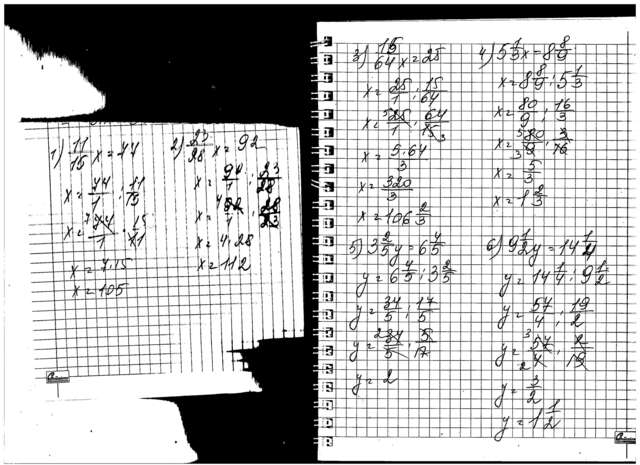 1) 11/15 x = 77
x = 77/1 : 11/15
x = 77/1 · 15/11
x = 7·15
x = 105
2) 23/28 x = 92
x = 92/1 : 23/28
x = 92/1 · 28/23
x = 4·28
x = 112
3) 15/64 x = 25
x = 25/1 : 15/64
x = 25/1 · 64/15
x = 5·64/3
x = 320/3
x = 106 2/3
4) 5 1/3 x = 8 8/9
x = 8 8/9 : 5 1/3
x = 80/9 : 16/3
x = 80/9 · 3/16
x = 5/3
x = 1 2/3
5) 3 2/5 y = 6 4/5
y = 6 4/5 : 3 2/5
y = 34/5 : 17/5
y = 34/5 · 5/17
y = 2
6) 9 1/2 y = 14 1/4
y = 14 1/4 : 9 1/2
y = 57/4 : 19/2
y = 57/4 · 2/19
y = 3/2
y = 1 1/2